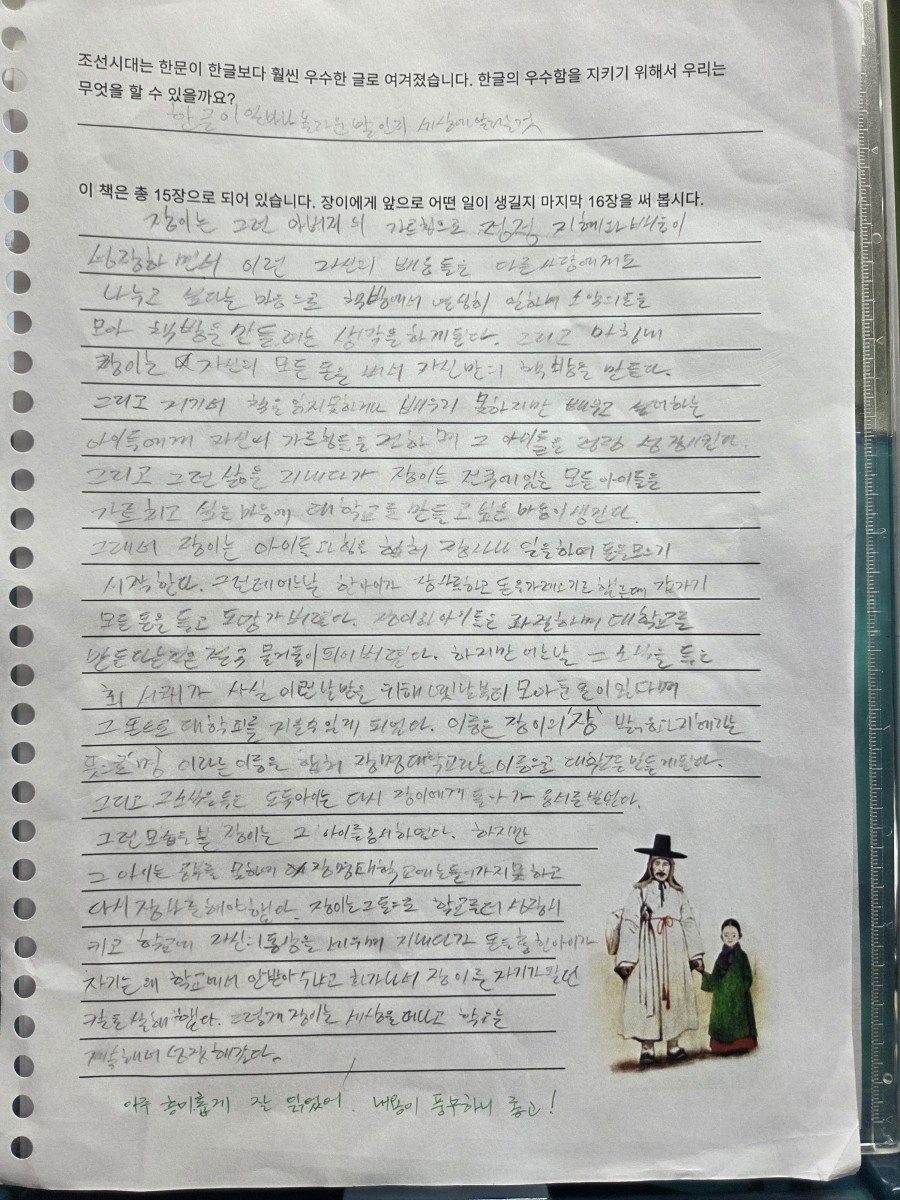 조선시대는 한문이 한글보다 훨씬 우수한 글로 여겨졌습니다. 한글의 우수함을 지키기 위해서 우리는
무엇을 할 수 있을까요?
한글이 얼마나 놀라운 말인지 세상에 알리는 것
이 책은 총 15장으로 되어 있습니다. 장이에게 앞으로 어떤 일이 생길지 마지막 16장을 써 봅시다.
장이는 그런 아버지의 가르침으로 점점 지혜와 배움이
성장하면서 이런 자신의 배움들을 다른 사람에게도
나누고 싶다는 마음으로 책방에서 열심히 일하며
모아 책방을 만들려는 생각을 하게된다. 그리고 마침내
장이는 자신의 모든 돈을 써서 자신만의 책방을 만든다.
그리고 거기서 책을 읽지못하거나 배우지 못하지만 배우고 싶어하는
아이들에게 자신의 가르침들을 전하며 그 아이들을 점점 성장시킨다.
그리고 그런 삶을 지내다가 장이는 전국에있는 모든 아이들을
가르치고 싶은 마음에 대학교를 만들고 싶은 마음이 생긴다.
그래서 장이는 아이들과 힘을 합쳐 장사나 일을하며 돈을모으기
시작한다. 그런데 어느날 한아이가 돈을 갑자기
모든 돈을 들고 도망가버렸다. 장이와 아이들은 좌절하며 대학교를
만든다는것은 전국 물거품이 되어버렸다. 하지만 어느날 그 소식을 들은
최 서쾌가 사실 이런날만을 위해 옛날부터 모아둔 돈이 있다며
그 돈으로 대학교를 지을수있게 되었다. 이름은 장이의 '장'
뜻을 '명' 이라는 이름을 합쳐 장명대학교라는 이름으로 대학을 만들게된다.
그리고 그소식을 들은 도둑아이는 다시 장이에게 돌아가 용서를 빌었다.
그런 모습을 본 장이는 그 아이를 용서하였다. 하지만
그 아이는 공부를 못하여 장명대학교에는 들어가지 못하고
다시 장사를 해야했다. 장이는 그대로 학교를 더 성장시
키고 학교에 자신의 동상을 세우며 지내다가 돈을 훔친아이가
자기는 왜 학교에서 안받아주냐고 화가나서 장이를 자기가
칼로 살해했다. 그렇게 장이는 세상을 떠나고 학교는
계속해서 성장해갔다.
아주 흥미롭게 잘 읽었어. 내용이 풍부하니 좋고!